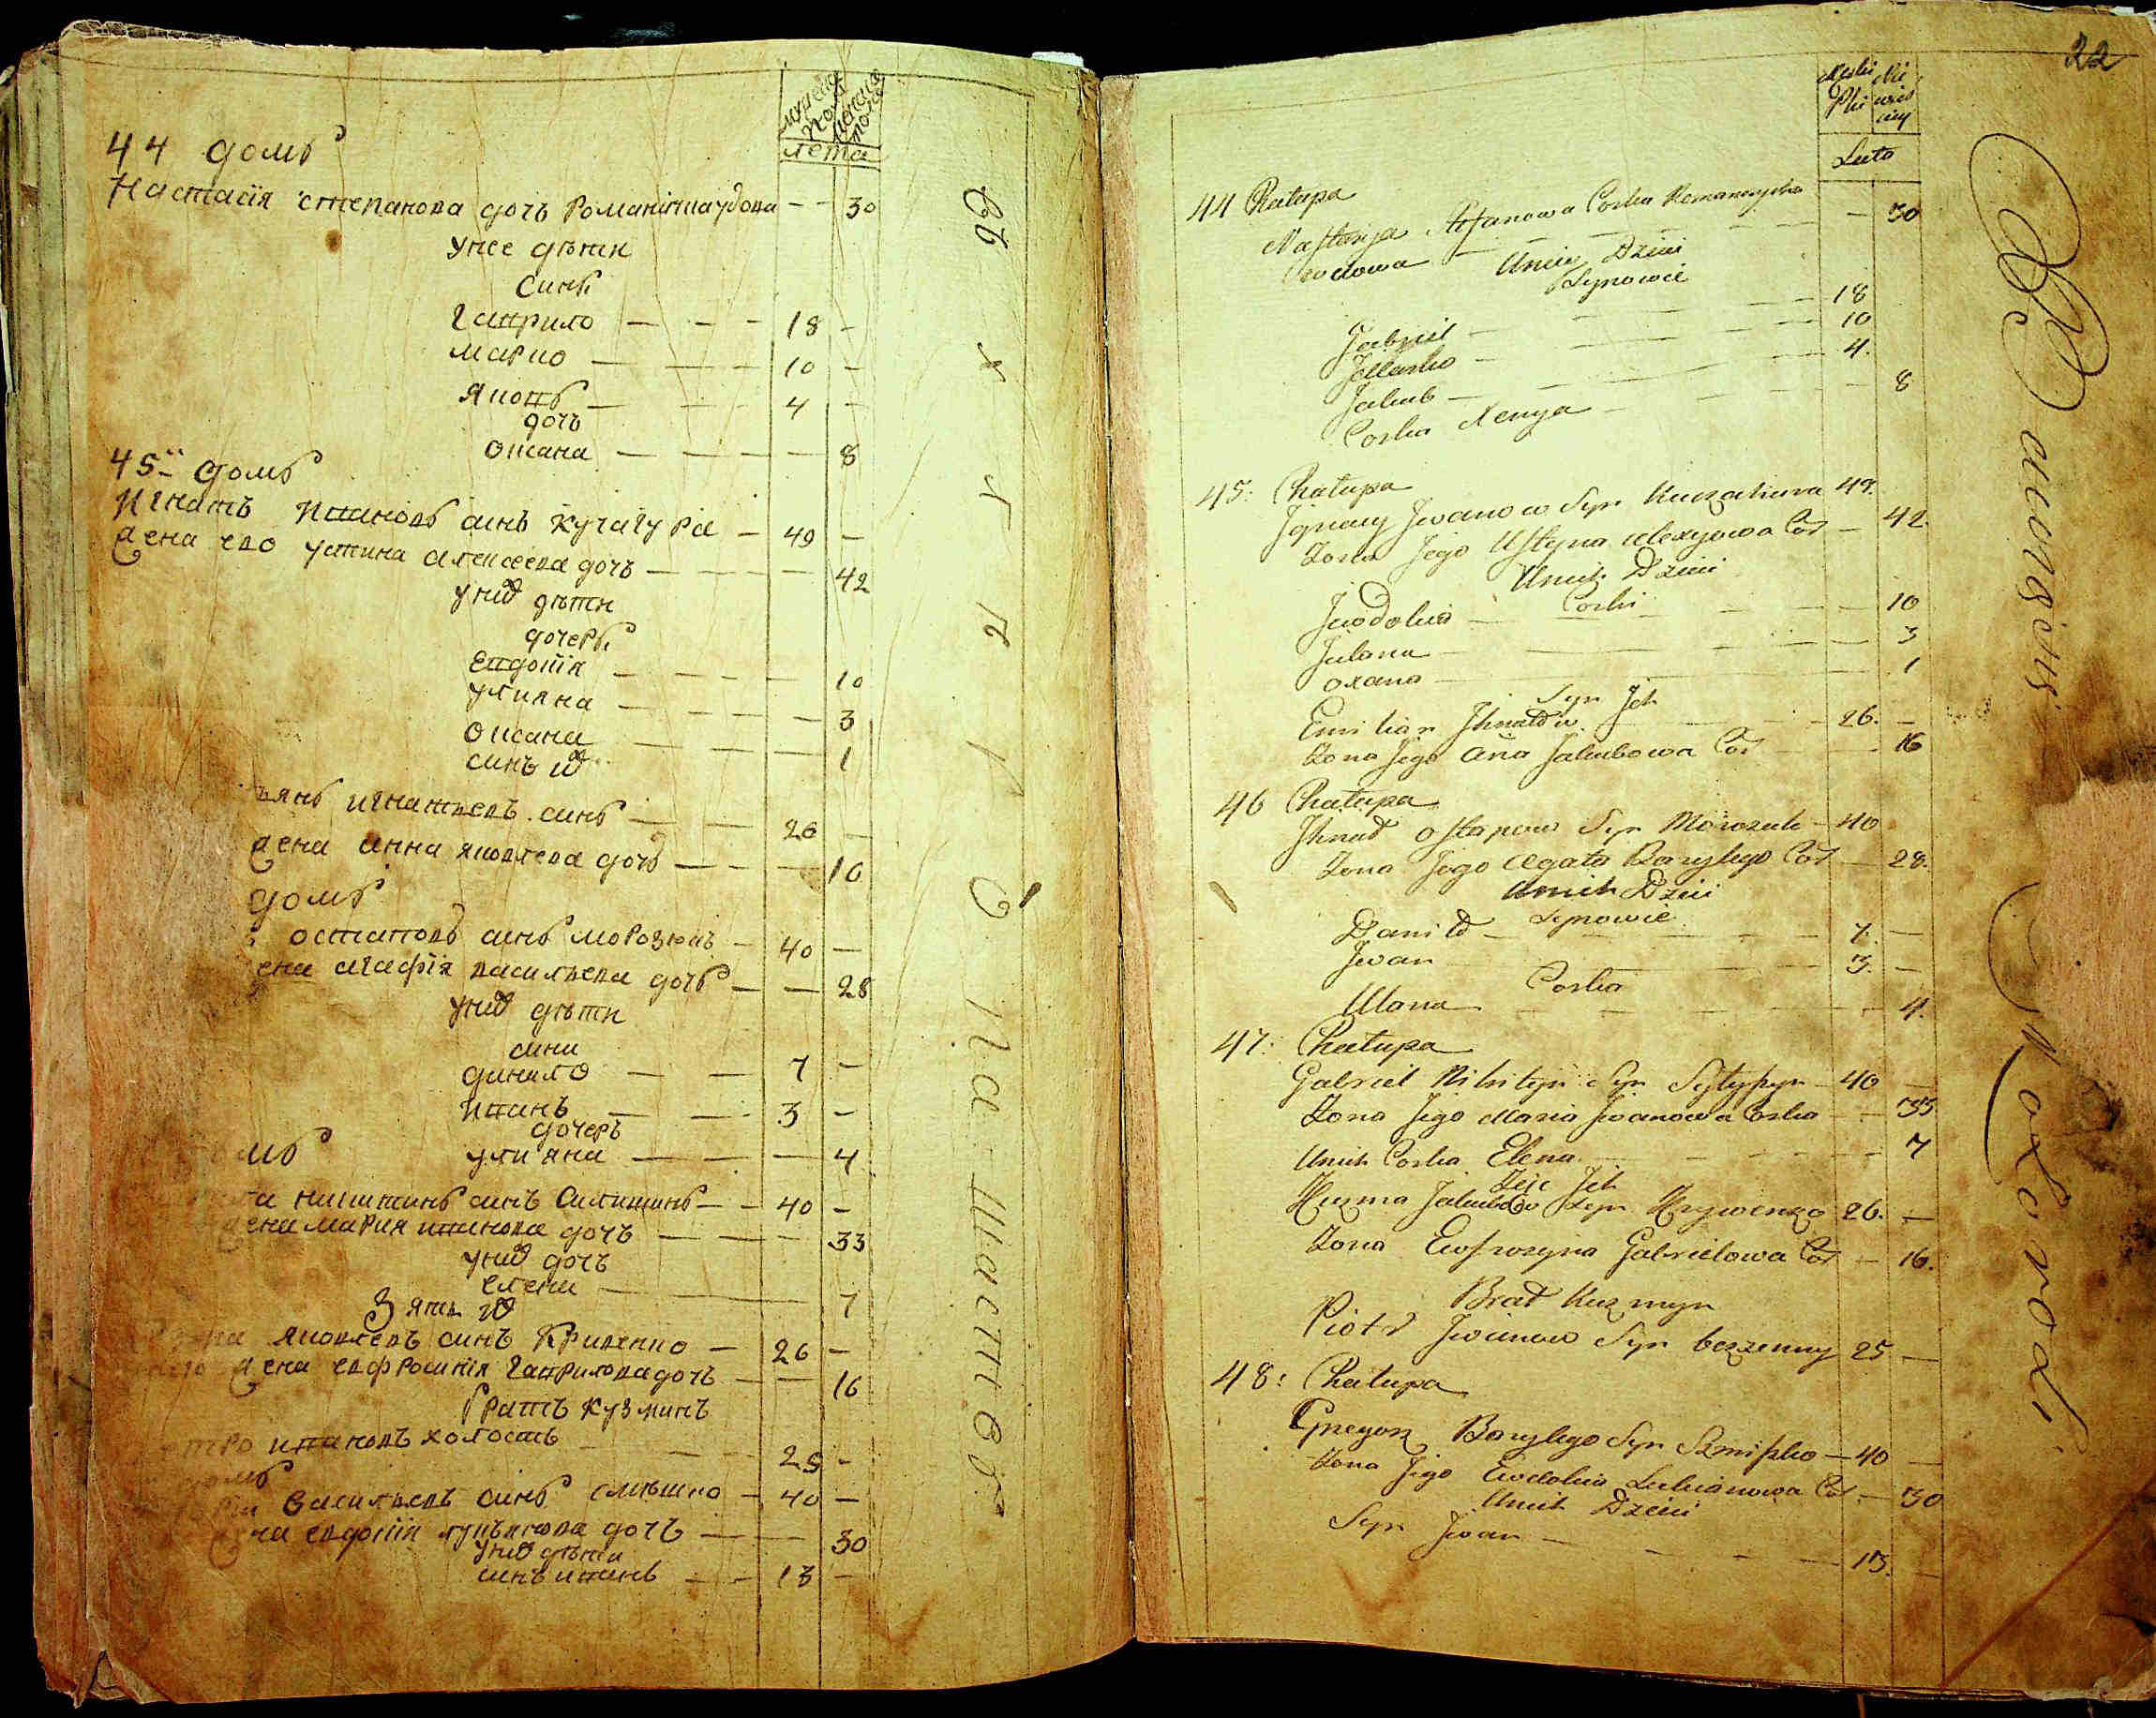 мужеска пола женска пола
лета
44 домъ
Настасія степанова дочъ Романіиха удова - - 30
у нее дѣти
сини
Гаврило - - - 18 -
марко - - - 10 -
Яковъ - - 4 -
дочъ
оксана - - - - 8
45й домъ
Игнатъ Ивановъ синъ Кучагура - 49 -
жена его устина алексеева дочъ - - - - 42
у них дѣти
дочери
Евдокія - - - - 10
улияна - - - - 3
Оксана - - - - 1
синъ их
ъянъ игнатьевъ синъ - - 26 -
жена анна яковлева дочъ - - - 16
домъ
остаповъ синъ морозюкъ - 40 -
ена агафія васильева дочъ - - 28
у них дѣти
сини
данило - - 7 -
Иванъ - - 3 -
дочеръ
мъ
улияна - - - 4
та никитинъ синъ - - 40 -
жена мария иванова дочъ - - - 33
у них дочъ
елена - 7
Зять их
яковлевъ синъ Кривенко - 26 -
его жена евфросинія гаврилова дочъ - - 16
братъ кузминъ
етро ивановъ холостъ - - - 25 -
домъ
Васильевъ синъ - 40 -
на евдокія лукьянова дочъ - - 30
у них дѣти
синъ иванъ - - 13 -
22
Męski Płci
Nie wieściey
Lata
44 Chałupa
Nastazya Stefanowa Corka Romanczycha
wdowa - - - - - - 30
Uniey Dzieci
Synowie
Gabriel - - - - 18
- - - 10
Jakub - - - - 4.
Corka Xenya - - - - 8
45: Chałupa
Jgnacy Jwanow Syn Kuczahura 49.
Zona Jego Ustyna Alexyowa Cor - 42.
Unich Dzieci
Corki
Jewdokia - - - - 10
Juliana - - - - 3
oxana - - 1
Syn Jch
Emilian Jhnatow - - - 26. -
Zona Jego Ana Jakubowa Cor - - 16
46 Chałupa
Jhnat ostapow Syn Morozuk - 40
Zona Jego Agata Bazylego Cor - 28.
Unich Dzieci
Synowie
Daniło - - - - 7. -
Jwan - - - 3. -
Corka
Ulana - - - - 4.
47: Chałupa
Gabriel Nikityn Syn - 40 -
Zona Jego Maria Jwanowa Corka - - 33
Unich Corka Elena - - - - 7
Zięc Jch
Kuzma Jakubow Syn Krywenko 26. -
Zona Ewfrozyna Gabrielowa Cor - 16.
Brat Kuzmyn
Piotr Jwanow Syn bezzenny 25 -
48: Chałupa
Gregorz Bazylego Syn - 40 -
Zona Jego Ewdokia Lukianowa Cor - 30
Unich Dzieci
Syn Jwan - - - - 13. -